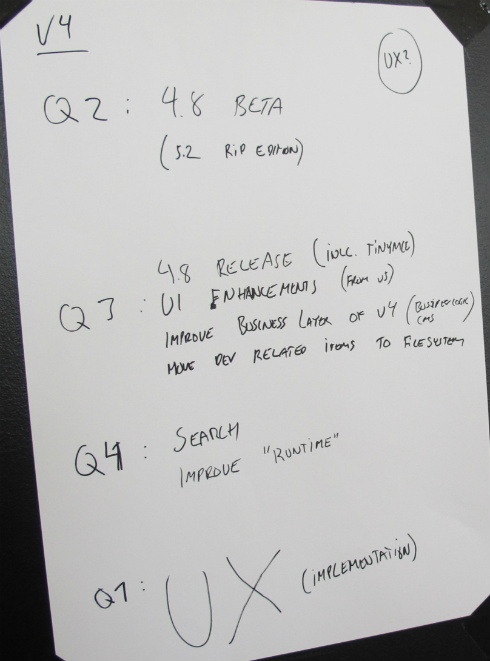 V4
UX?
Q2: 4.8 BETA
(5.2 RIP EDITION)
4.8 RELEASE (INCL. TINYMCE)
Q3: UI ENHANCEMENTS (FROM V5)
IMPROVE BUSINESS LAYER OF V4 (BUSINESSLOGIC CMS)
MOVE DEV RELATED ITEMS TO FILESYSTEM
Q4: SEARCH
IMPROVE "RUNTIME"
Q1: UX (IMPLEMENTATION)